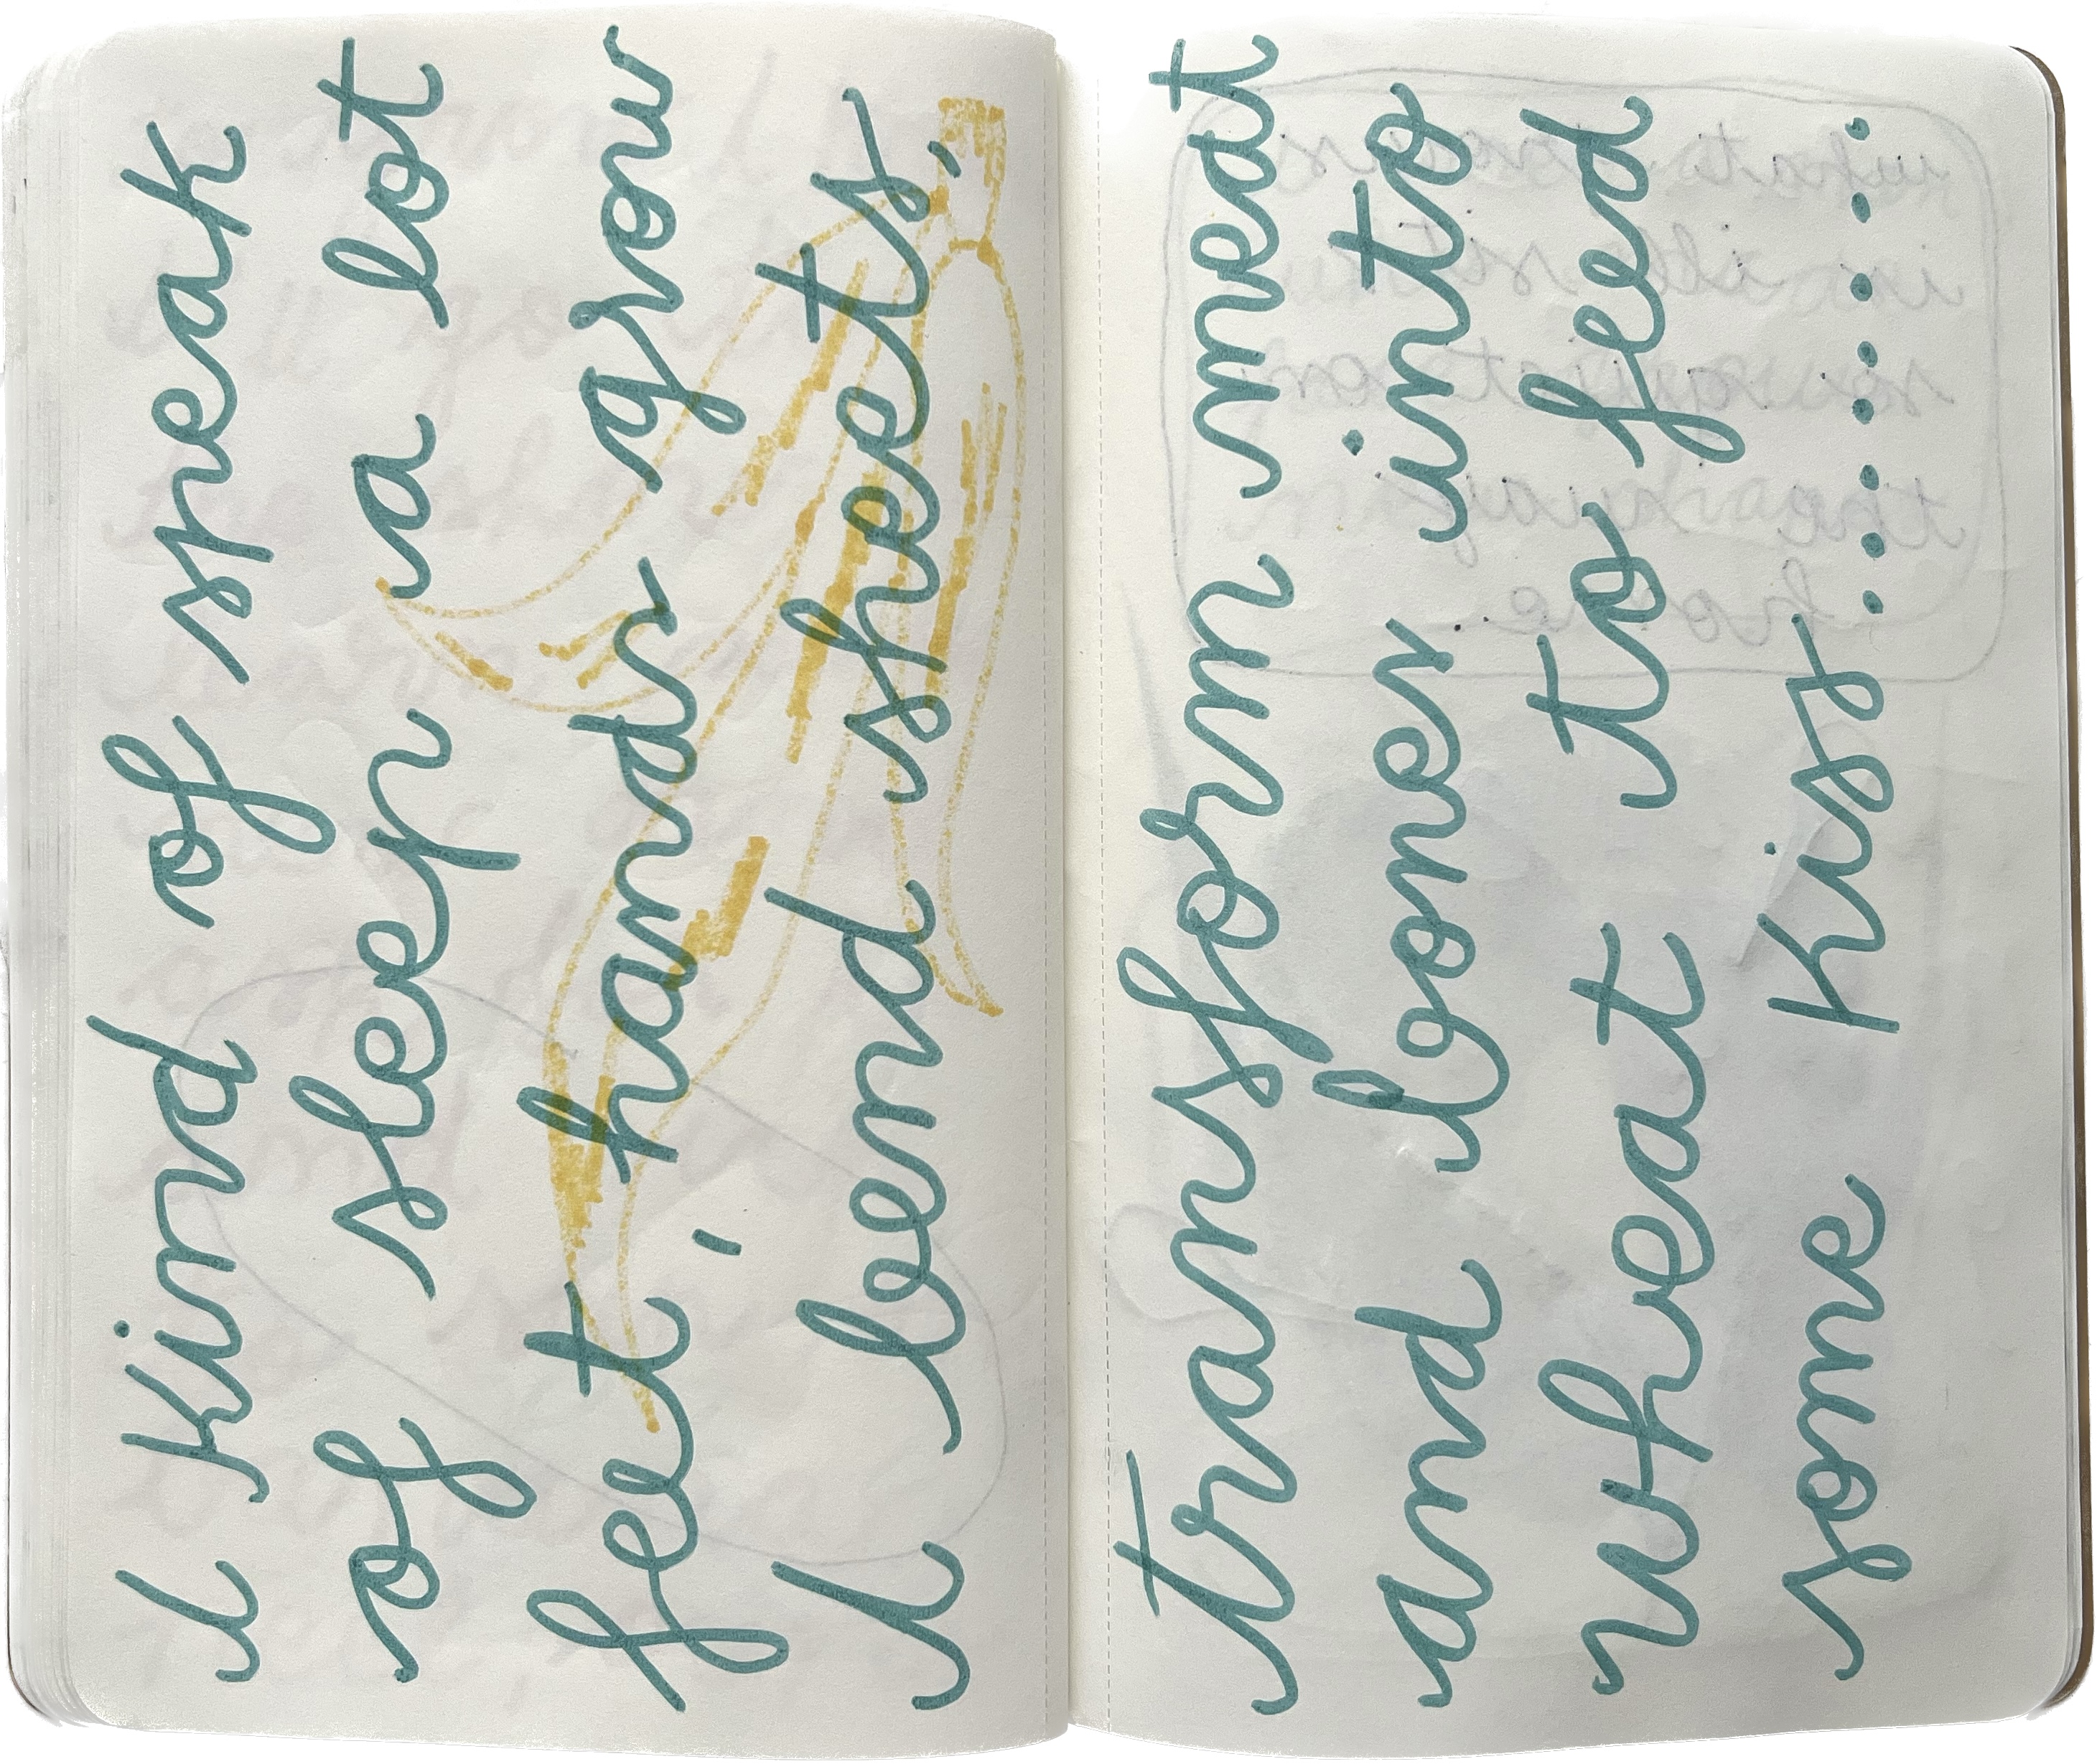 I kind of speak
of sleep a lot
feet, hands grow
I bend sheets,
transform meat
and bones into
wheat to feed
some kiss........